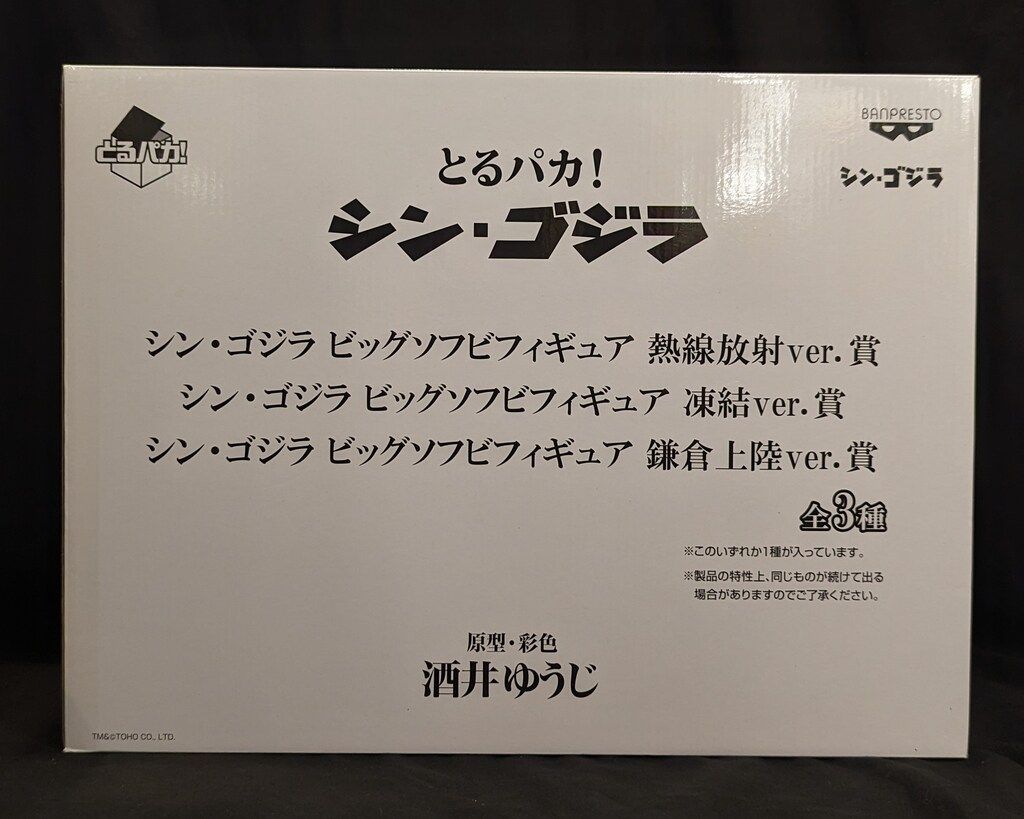 とるパカ!
BANPRESTO
シン・ゴジラ
とるパカ!
シン・ゴジラ
シン・ゴジラ ビッグソフビフィギュア 熱線放射ver.賞
シン・ゴジラ ビッグソフビフィギュア 凍結ver.賞
シン・ゴジラ ビッグソフビフィギュア 鎌倉上陸ver.賞
全3種
※このいずれか1種が入っています。
※製品の特性上、同じものが続けて出る
場合がありますのでご了承ください。
原型・彩色
酒井ゆうじ
TM&©TOHO CO., LTD.